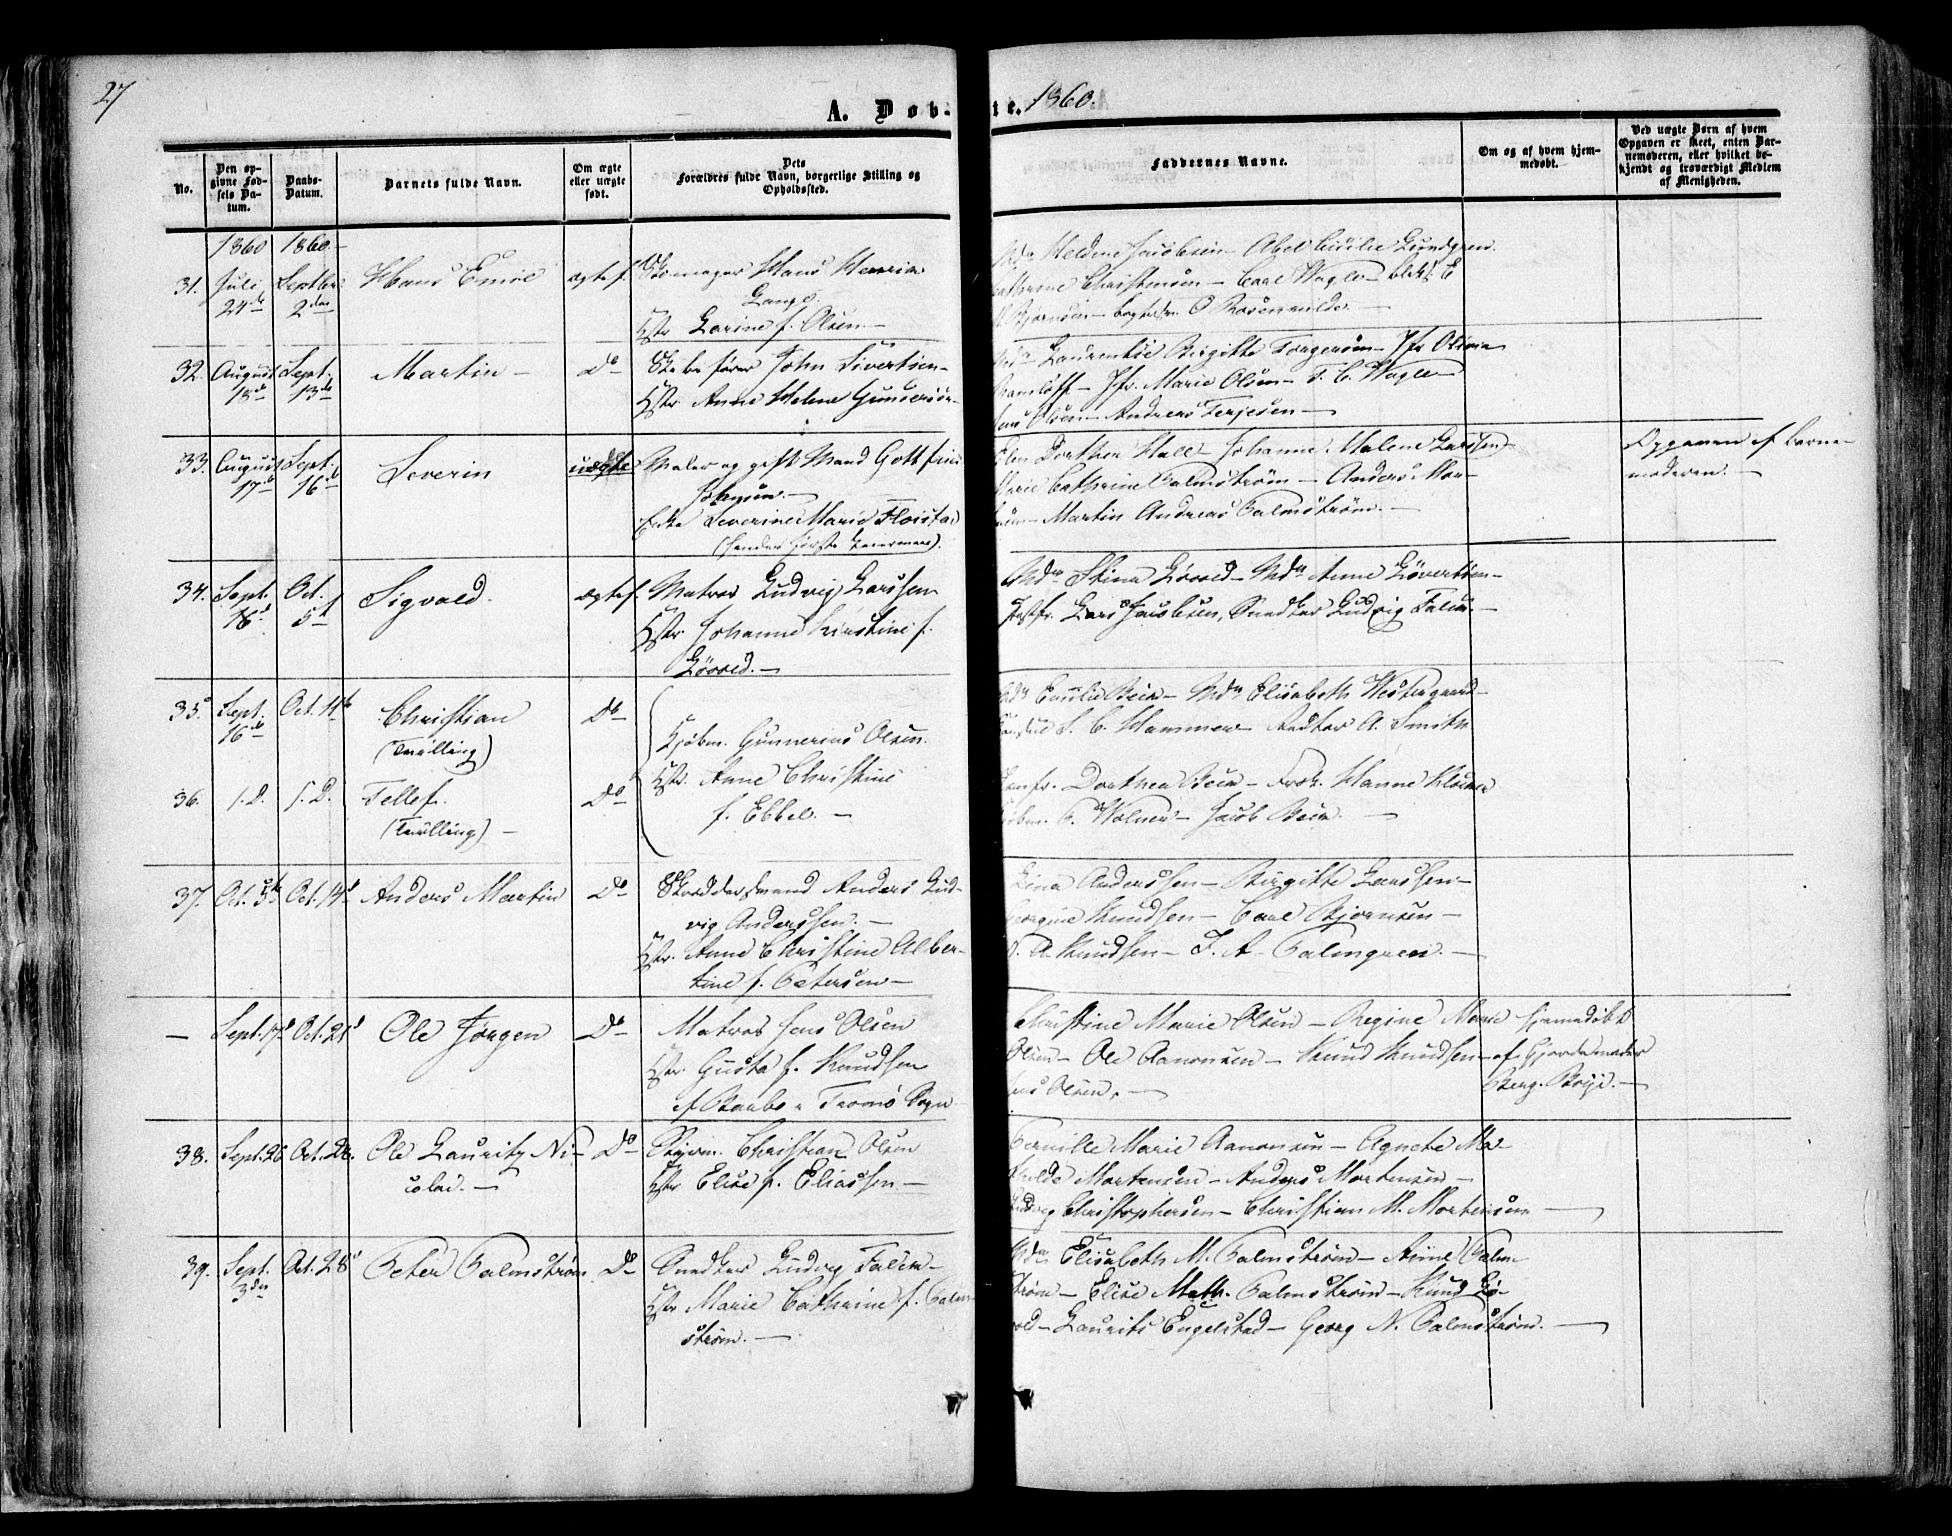 27
A. Døb-
te. 1860.
No.
Den op-
givne Fød-
sels Da-
tum.
Daabs-
Datum.
Barnets fulde Navn.
Om ægte
eller uægte
født.
Dets
Forældres fulde Navn, borgerlige Stilling og
Opholdssted.
Faddernes Navne.
Om og af hvem hjem-
medøbt.
Ved uægte Børn af hvem
Opgaven er skeet, enten Bar-
nemoderen, eller hvilket be-
kjendt og troværdigt Medlem
af Menigheden.
1860 1860
31. Juli 24de Septber 2den Hans Emil ægtef. Skomager Hans Henrik
Lange
Hstr Larine f. Olsen
Mdm Heldine Jacobsen – Abel Cecilie Lundgren
Cathrine Christensen – Carl Wagle –
Bjørnsen – O Rosenvilde
32. August 18de Sept. 13de Martin – Do Skibsfører John Sivertsen –
Hstr. Anne Helene Gundersen
Laurentse Birgitte Torgersen – Jfr Olivia
Jfr. Marie Olsen – T. C. Wagle –
Jens Olsen – Andreas Terjesen –
33. August 17de Sept. 16de Severin uægte Maler og gift Mand Gottfried
Johnsen –
Enke Severine Marie Floistad
(hendes første Leiermaal).
Elen Dorthea Hall – Johanne Malene Larssen
Marie Cathrine Palmstrøm – Anders
Martin Andreas Palmstrøm –
Opgaven af Barne-
moderen. –
34. Sept. 18de Oct. 5te Sigvald. ægtef. Matros Ludvig Larssen
Hstr. Johanne Kirstine f.
Løvold. –
Mdm Stina Løvold – Mdm Anne Syvertsen –
Lars Jacobsen, Snedker Ludvig Falen. –
35. Sept. 16de Oct. 11te Christian
(Tvilling)
Do
Kjøbm. Gunnerius Olsen.
Hstr. Anne Christine
f. Ebbel. –
Mdm Emilie Bein – Mdm Elisabeth Westergaard –
S. C. Hammer – Redkter A. Smith
36. s. D. s. D. Tellef.
(Tvilling) –
Do
Jomfr. Dorthea Bein – Frøk. Hanne Kløcker
Kjøbm. P. Wolner – Jacob Bein. –
37. Oct. 5te Oct. 14de Anders Martin Do Skrædersvend Anders Lud-
vig Anderssen. –
Hstr. Anne Christine Alber-
tine f. Petersen –
Lina Anderssen – Birgitte Larssen –
Georgine Knudsen – Carl Bjørnsen –
A. Knudsen – J. A. Palmgren. –
– Sept. 17de Oct. 21de Ole Jørgen Do Matros Jens Olsen
Hstr. Gusta f. Knudsen
af Tromø Sogn
Christine Marie Olsen – Regine Marie
Olsen – Ole Aanonsen – Knud Knudsen
Jens Olsen. –
hjemmedøbt
af Gjordemoder
Berg. Boije. –
38. Sept. 26 Oct. 28. Ole Lauritz Ni-
colai. –
Do Styrm. Christian Olsen
Hstr Elise f. Eliassen –
Pernille Marie Aanonsen – Agnete Ma-
thilde Mortensen – Anders Mortensen –
Ludvig Christophersen – Christian M. Mortensen –
39. Sept. 3den Oct. 28de Peter Palmstrøm Do Snedker Ludvig Falen –
Hstr Marie Cathrine f. Palm-
strøm. –
Mdm Elisabeth M. Palmstrøm – Anne Palm
strøm – Elise Math. Palmstrøm – Knud Lø-
vold – Laurits Engelstad – Georg N. Palmstrøm. –